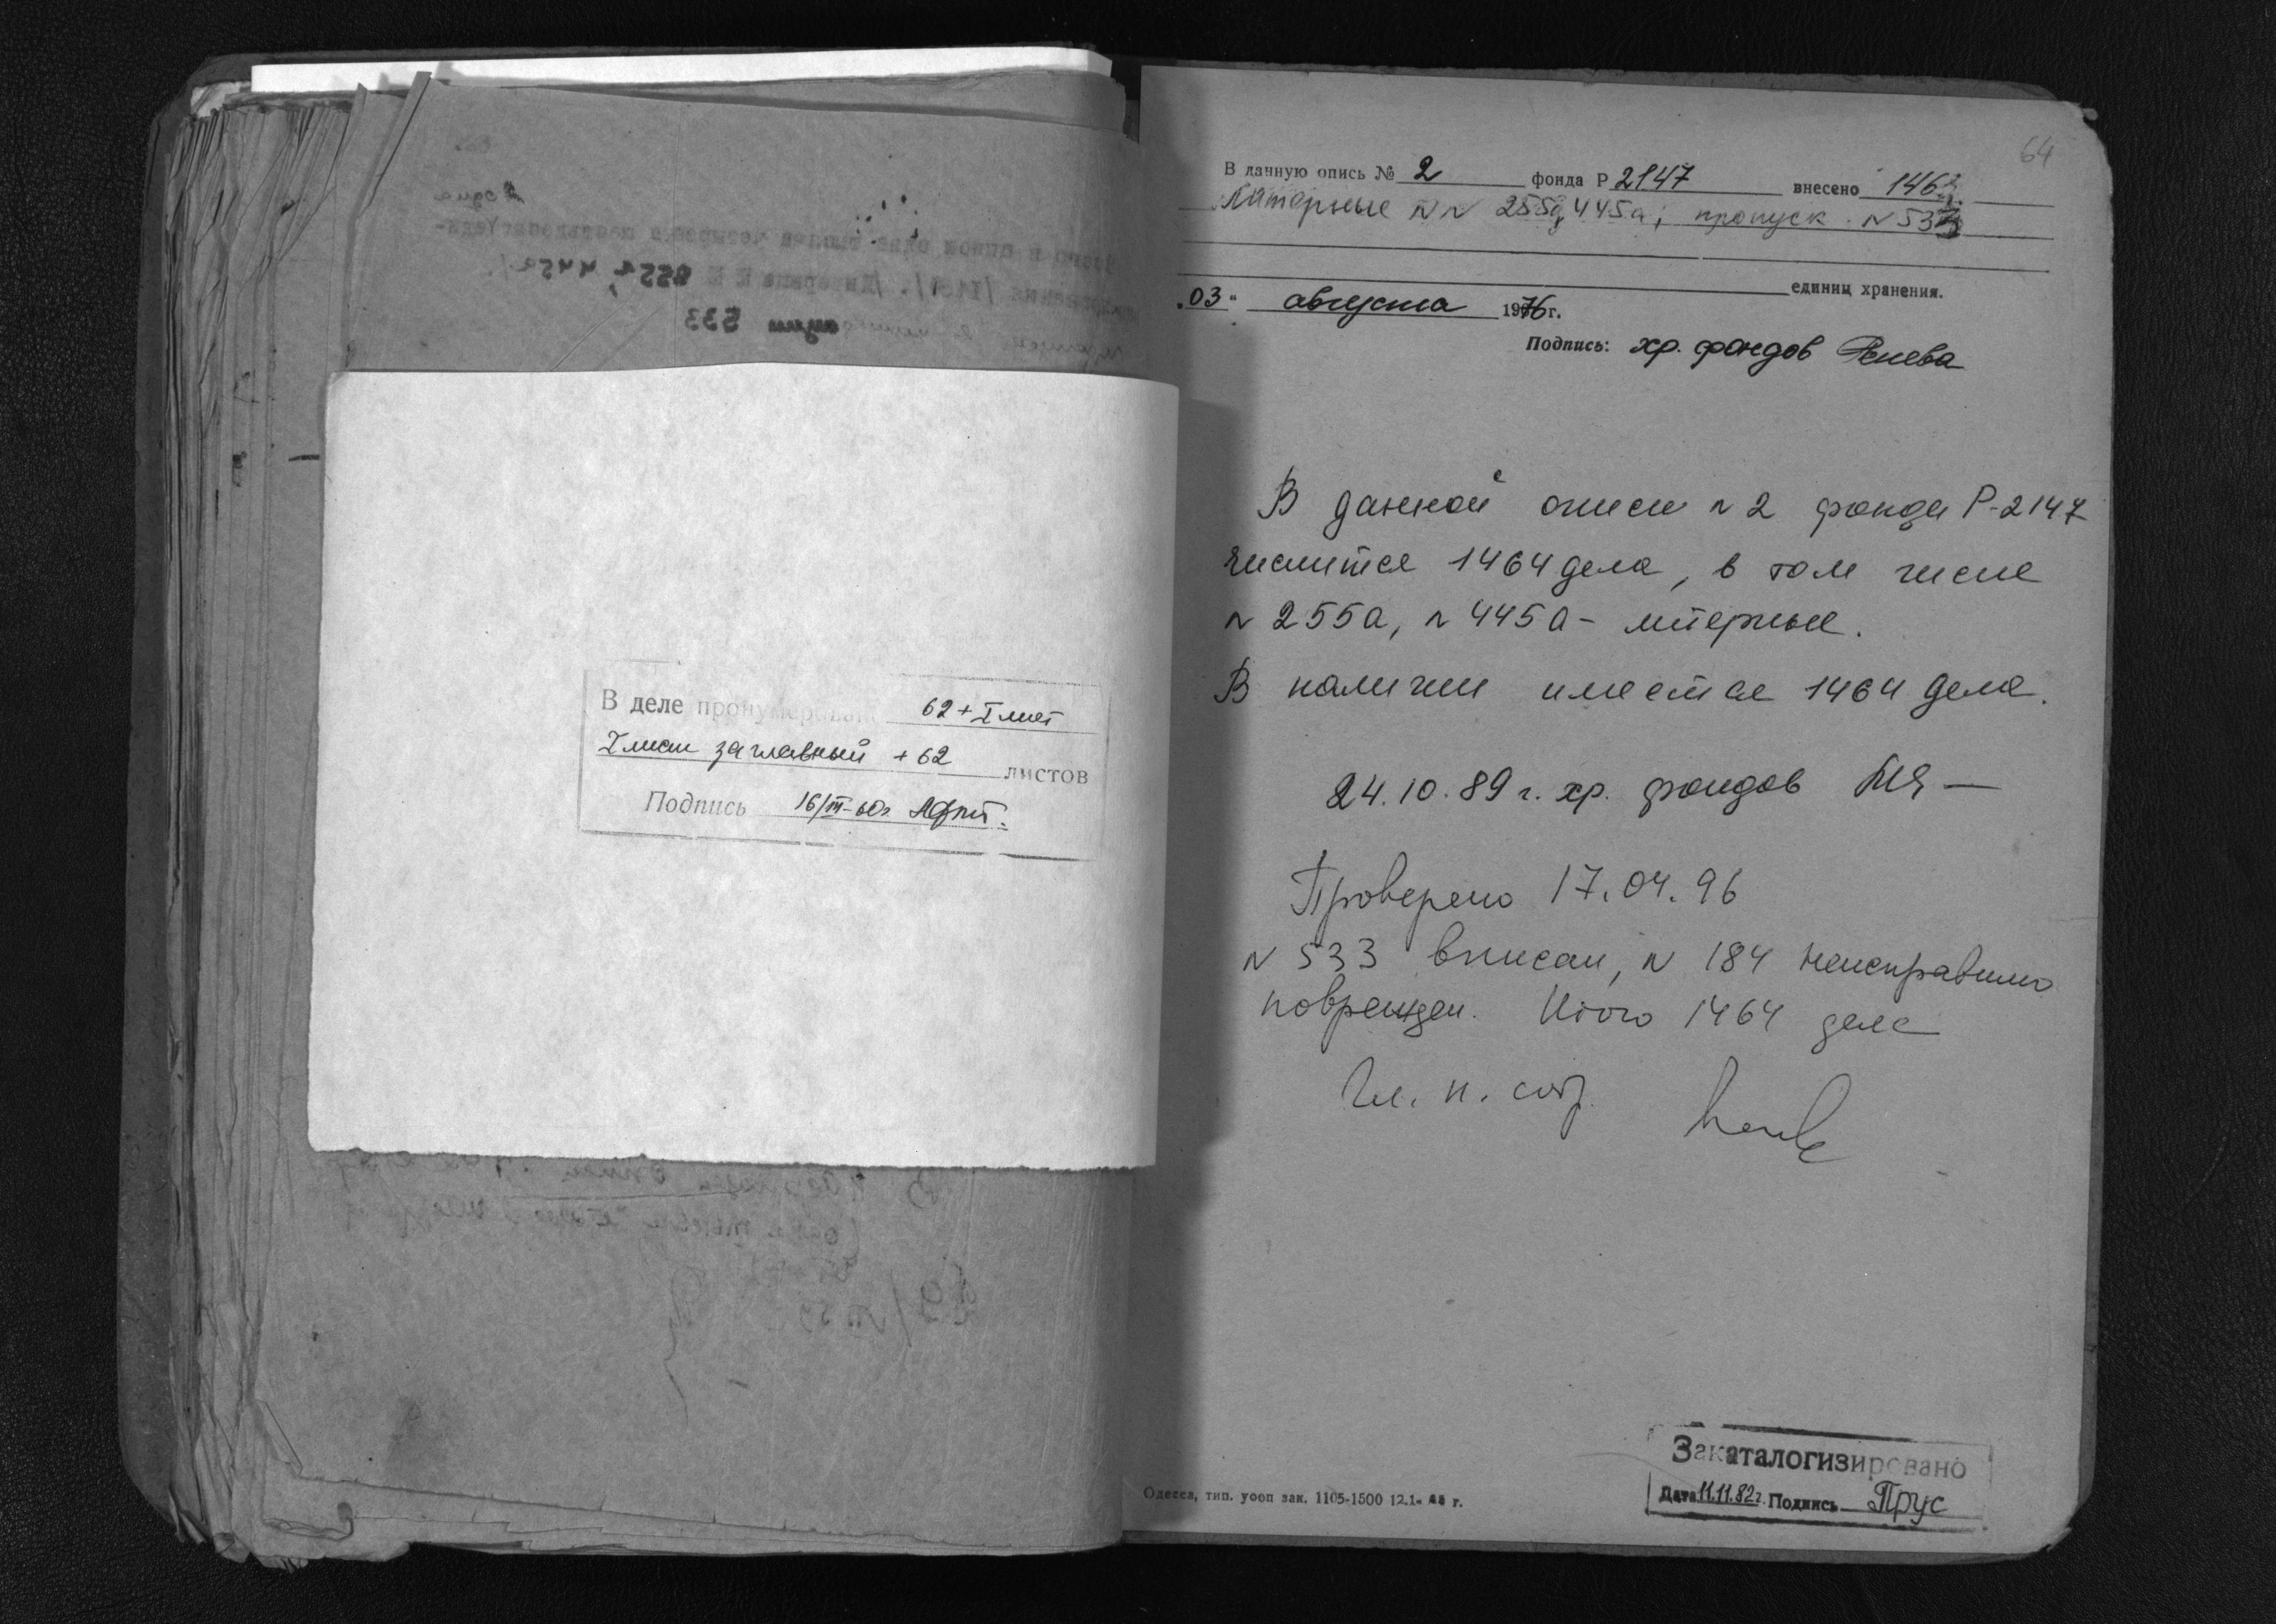 В деле пронумеровано 62 + I лист
I лист заглавный + 62 листов
Подпись 16/III-60г.
64
В данную опись № 2 фонда Р 2147 внесено 1463
Литерные N N 255а, 445а; пропуск N 533
единиц хранения.
„03“ августа 1976 г.
Подпись: хр. фондов
В данной описи N 2 фонда Р-2147
числится 1464 дела, в том числе
N 255а, N 445а - литерные.
В наличии имеется 1464 дела.
24.10.89 г. хр. фондов
Проверено 17.04.96
N 533 вписан, N 184 неисправимо
поврежден. Итого 1464 дела
Гл. н. сотр.
Закаталогизировано
Дата 11.11.82г. Подпись Прус
Одесса, тип. уооп зак. 1105-1500 12.1- г.